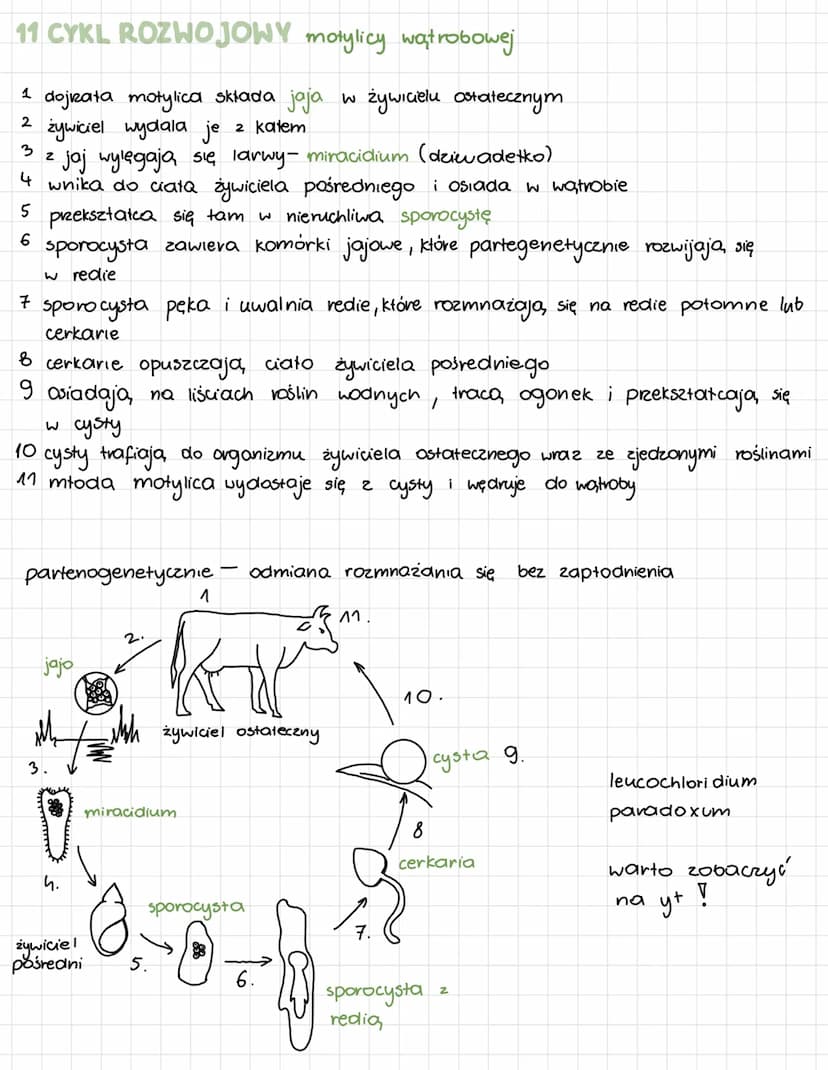 11 CYKL ROZWOJOWY motylicy wątrobowej
1 dojrzała motylica składa jaja w żywicielu ostatecznym
2 żywiciel wydala je z kałem
3 z jaj wylęgają się larwy- miracidium (dziwadełko)
4 wnika do ciała żywiciela pośredniego i osiada w wątrobie
5 przekształca się tam w nieruchliwa sporocystę
6 sporocysta zawiera komórki jajowe, które partegenetycznie rozwijają się
w redie
7 sporocysta pęka i uwalnia redie, które rozmnażają się na redie potomne lub
cerkarie
8 cerkarie opuszczają ciało żywiciela pośredniego
9 osiadają na liściach roślin wodnych, tracą ogonek i przekształcają się
w cysty
10 cysty trafiają do organizmu żywiciela ostatecznego wraz ze zjedzonymi roślinami
11 młoda motylica wydostaje się z cysty i wędruje do wątroby
partenogenetycznie - odmiana rozmnażania się bez zapłodnienia
1
11.
2.
jajo
10.
żywiciel ostateczny
cysta 9.
3.
leucochloridium
paradoxum
miracidium
8
cerkaria
warto zobaczyć
na yt !
4.
sporocysta
7.
żywiciel
pośredni
5.
6.
sporocysta z
redią